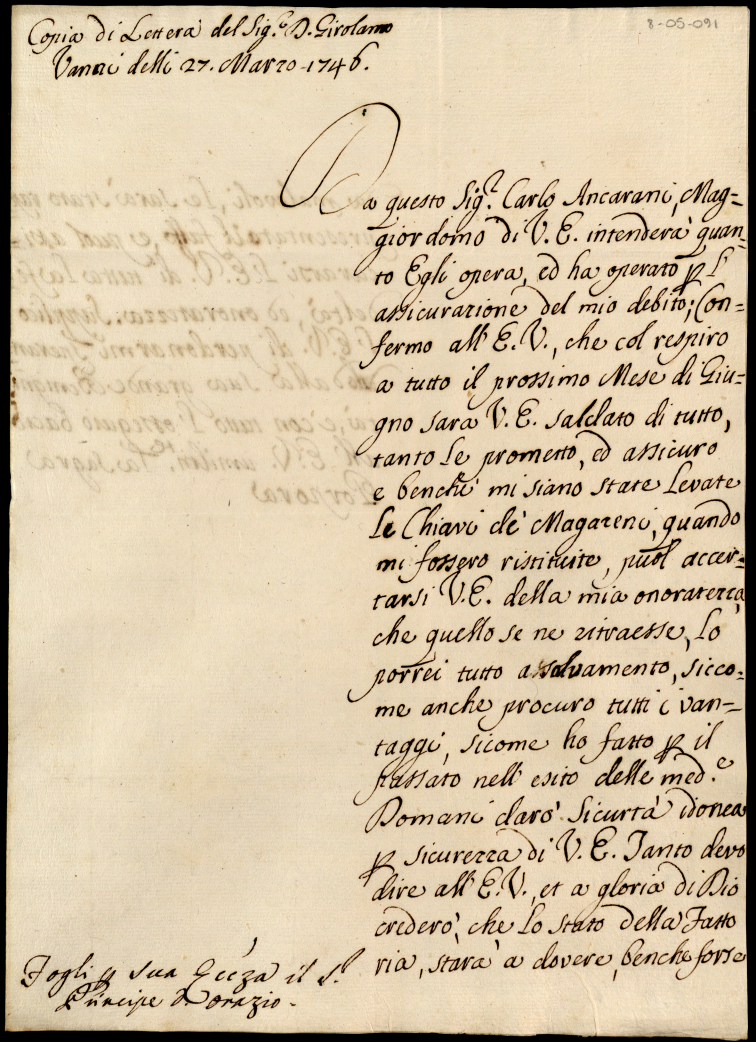 8-05-091
Copia di Lettera del Sig.e D. Girolamo
Vanni delli 27. Marzo 1746.
Da questo Sig.r Carlo Ancarani, Mag=
giordomo di V. E. intenderà quan=
to Egli opera, ed ha operato p l'
assicurazione del mio debito; Con=
fermo all' E. V., che col respiro
a tutto il prossimo Mese di Giu=
gno sarà V. E. saldato di tutto,
tanto Le prometto, ed assicuro
e benchè mi siano state Levate
Le Chiavi de' Magazeni, quando
mi fossero ristituite, puol accer=
tarsi V. E. della mia onoratezza,
che quello se ne ritraesse, Lo
porrei tutto a salvamento, sicco=
me anche procuro tutti i van=
taggi, sicome ho fatto p il
passato nell' esito delle med.e
Domani darò Sicurtà idonea
p sicurezza di V. E. Tanto devo
dire all' E. V., et a gloria di Dio
crederò, che Lo stato della Fatto
ria, starà a dovere, benche forse
Fogli p sua Ecc.za il S.r
Principe D. Orazio.